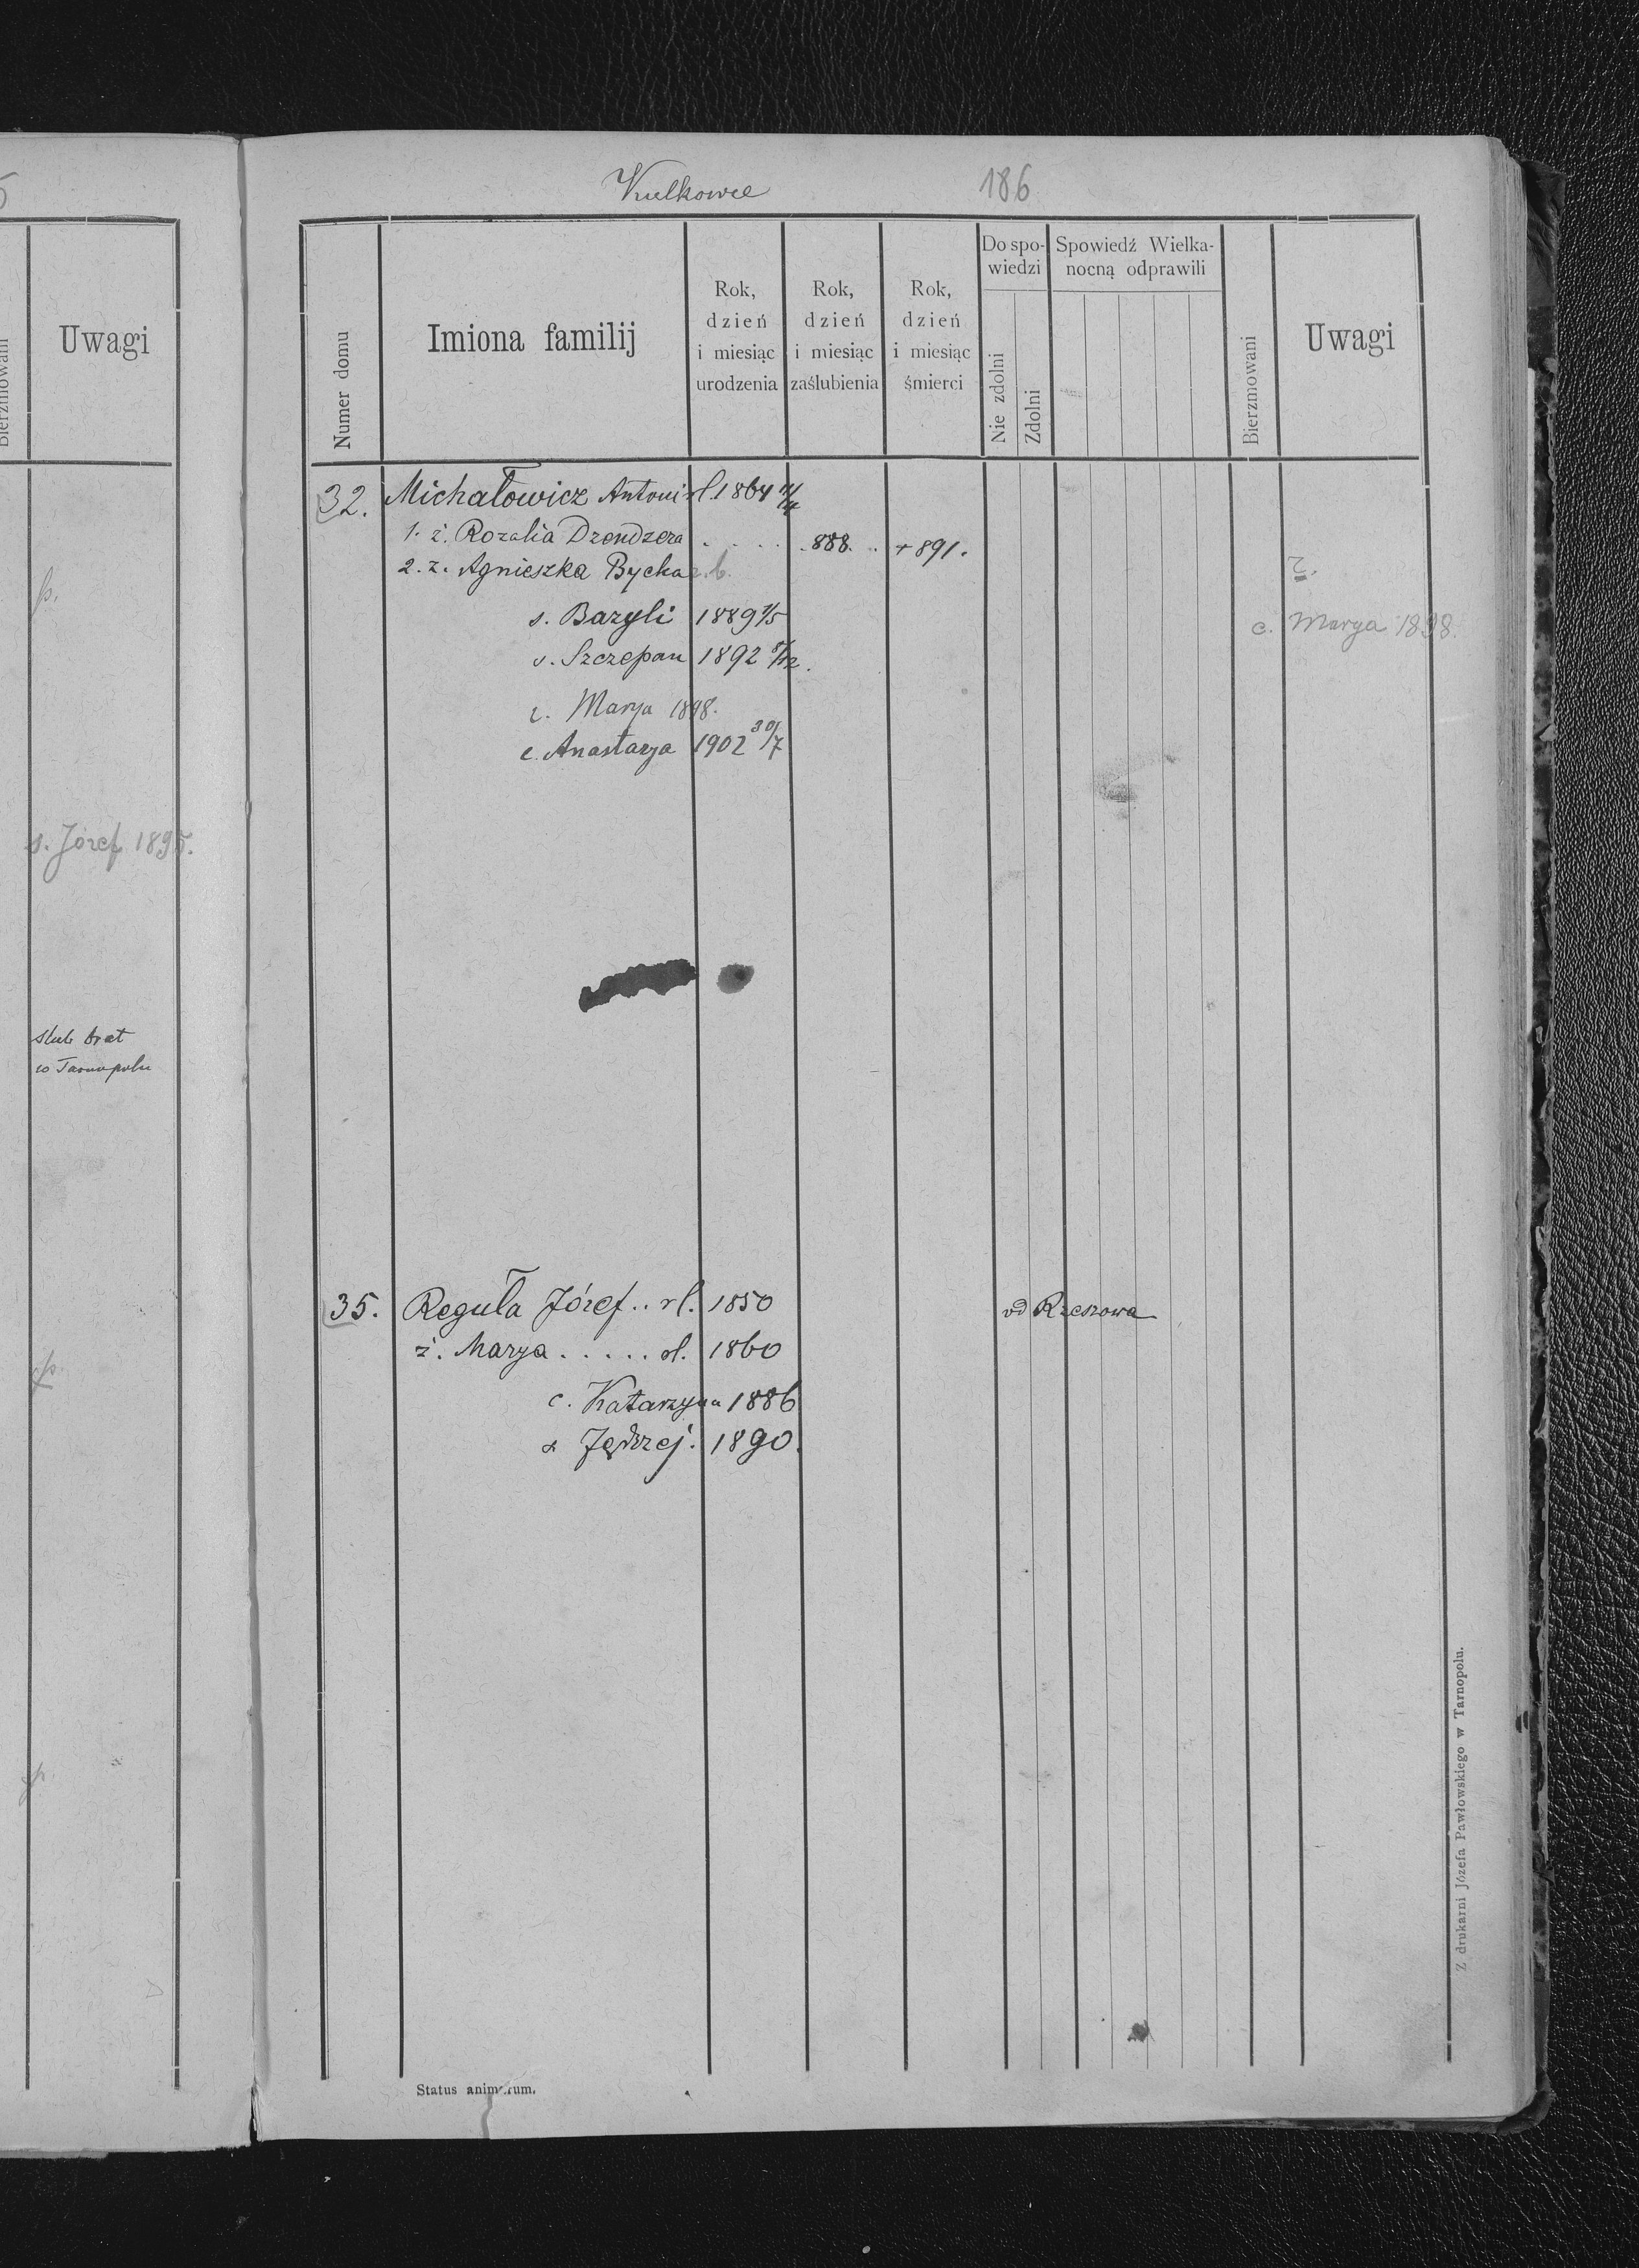 Uwagi
Bierzmowani
s. Józef 1895.
ślub brat
w Tarnopolu
Kulkowce 186
Numer domu
Imiona familij
Rok,
dzień
i miesiąc
urodzenia
Rok,
dzień
i miesiąc
zaślubienia
Rok,
dzień
i miesiąc
śmierci
Do spo-
wiedzi
Nie zdolni
Zdolni
Spowiedź Wielka-
nocną odprawili
Bierzmowani
Uwagi
32. Michałowicz Antoni rl. 1864 11/4
1. ż. Rozalia Dzendzera . . . . . 888. . + 891.
2. ż. Agnieszka Bycka
s. Bazyli 1889 1/5
c. Marya 1898.
s. Szczepan 1892 8/12.
c. Marya 1898.
c. Anastazya 1902 30/7
35. Reguła Józef .. rl. 1850 od Rzeszowa
ż. Marya . . . . . rl. 1860
c. Katarzyna 1886
s. Jędrzej. 1890.
Status animarum.
Z drukarni Józefa Pawłowskiego w Tarnopolu.